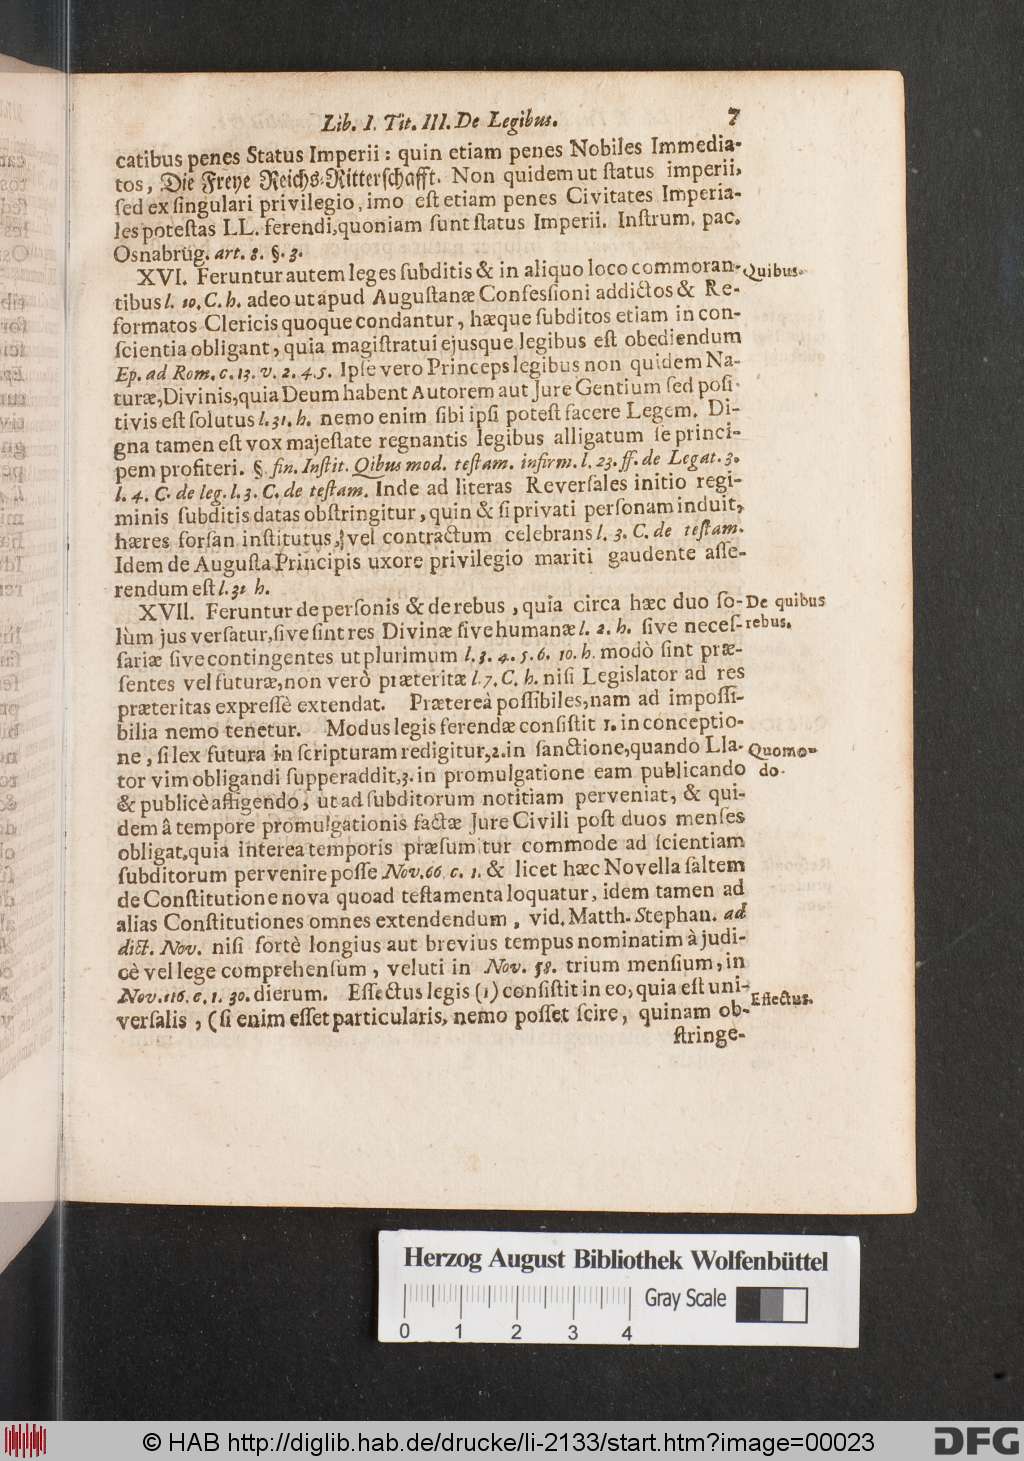 Lib. I. Tit. III. De Legibus. 7
catibus penes Status Imperii: quin etiam penes Nobiles Immedia-
tos, Die Freye Reichs-Ritterschafft. Non quidem ut status imperii,
ſed ex ſingulari privilegio, imo eſt etiam penes Civitates Imperia-
les poteſtas LL. ferendi, quoniam ſunt ſtatus Imperii. Inſtrum. pac.
Osnabrüg. art. 8. §. 3.
XVI. Feruntur autem leges ſubditis & in aliquo loco commoran- Quibus.
tibus l. 10. C. h. adeo ut apud Auguſtanæ Confeſsioni addictos & Re-
formatos Clericis quoque condantur, hæque ſubditos etiam in con-
ſcientia obligant, quia magiſtratui ejusque legibus eſt obediendum
Ep. ad Rom. c. 13. v. 2. 4. 5. Ipſe vero Princeps legibus non quidem Na-
turæ, Divinis, quia Deum habent Autorem aut Jure Gentium ſed poſi-
tivis eſt ſolutus l. 31. h. nemo enim ſibi ipſi poteſt facere Legem. Di-
gna tamen eſt vox majeſtate regnantis legibus alligatum ſe princi-
pem profiteri. §. fin. Inſtit. Qibus mod. teſtam. infirm. l. 23. ff. de Legat. 3.
l. 4. C. de leg. l. 3. C. de teſtam. Inde ad literas Reverſales initio regi-
minis ſubditis datas obſtringitur, quin & ſi privati perſonam induit,
hæres forſan inſtitutus, vel contractum celebrans l. 3. C. de teſtam.
Idem de Auguſta Principis uxore privilegio mariti gaudente aſſe-
rendum eſt l. 31 h.
XVII. Feruntur de perſonis & de rebus, quia circa hæc duo ſo- De quibus
lùm jus verſatur, ſive ſint res Divinæ ſive humanæ l. 2. h. ſive neceſ- rebus.
ſariæ ſive contingentes ut plurimum l. 3. 4. 5. 6. 10. h. modò ſint præ-
ſentes vel futuræ, non verò præteritæ l. 7. C. h. niſi Legislator ad res
præteritas expreſſè extendat. Prætereà poſſibiles, nam ad impoſſi-
bilia nemo tenetur. Modus legis ferendæ conſiſtit 1. in conceptio-
ne, ſi lex futura in ſcripturam redigitur, 2. in ſanctione, quando Lla- Quomo-
tor vim obligandi ſupperaddit, 3. in promulgatione eam publicando do.
& publicè affigendo, ut ad ſubditorum notitiam perveniat, & qui-
dem â tempore promulgationis factæ Jure Civili poſt duos menſes
obligat, quia interea temporis præſumitur commode ad ſcientiam
ſubditorum pervenire poſſe Nov. 66. c. 1. & licet hæc Novella ſaltem
de Conſtitutione nova quoad teſtamenta loquatur, idem tamen ad
alias Conſtitutiones omnes extendendum, vid. Matth. Stephan. ad
dict. Nov. niſi fortè longius aut brevius tempus nominatim à judi-
cè vel lege comprehenſum, veluti in Nov. 58. trium menſium, in
Nov. 116. c. 1. 30. dierum. Effectus legis (1) conſiſtit in eo, quia eſt uni- Effectus.
verſalis, (ſi enim eſſet particularis, nemo poſſet ſcire, quinam ob-
ſtringe-
Herzog August Bibliothek Wolfenbüttel
Gray Scale
0 1 2 3 4
© HAB http://diglib.hab.de/drucke/li-2133/start.htm?image=00023
DFG